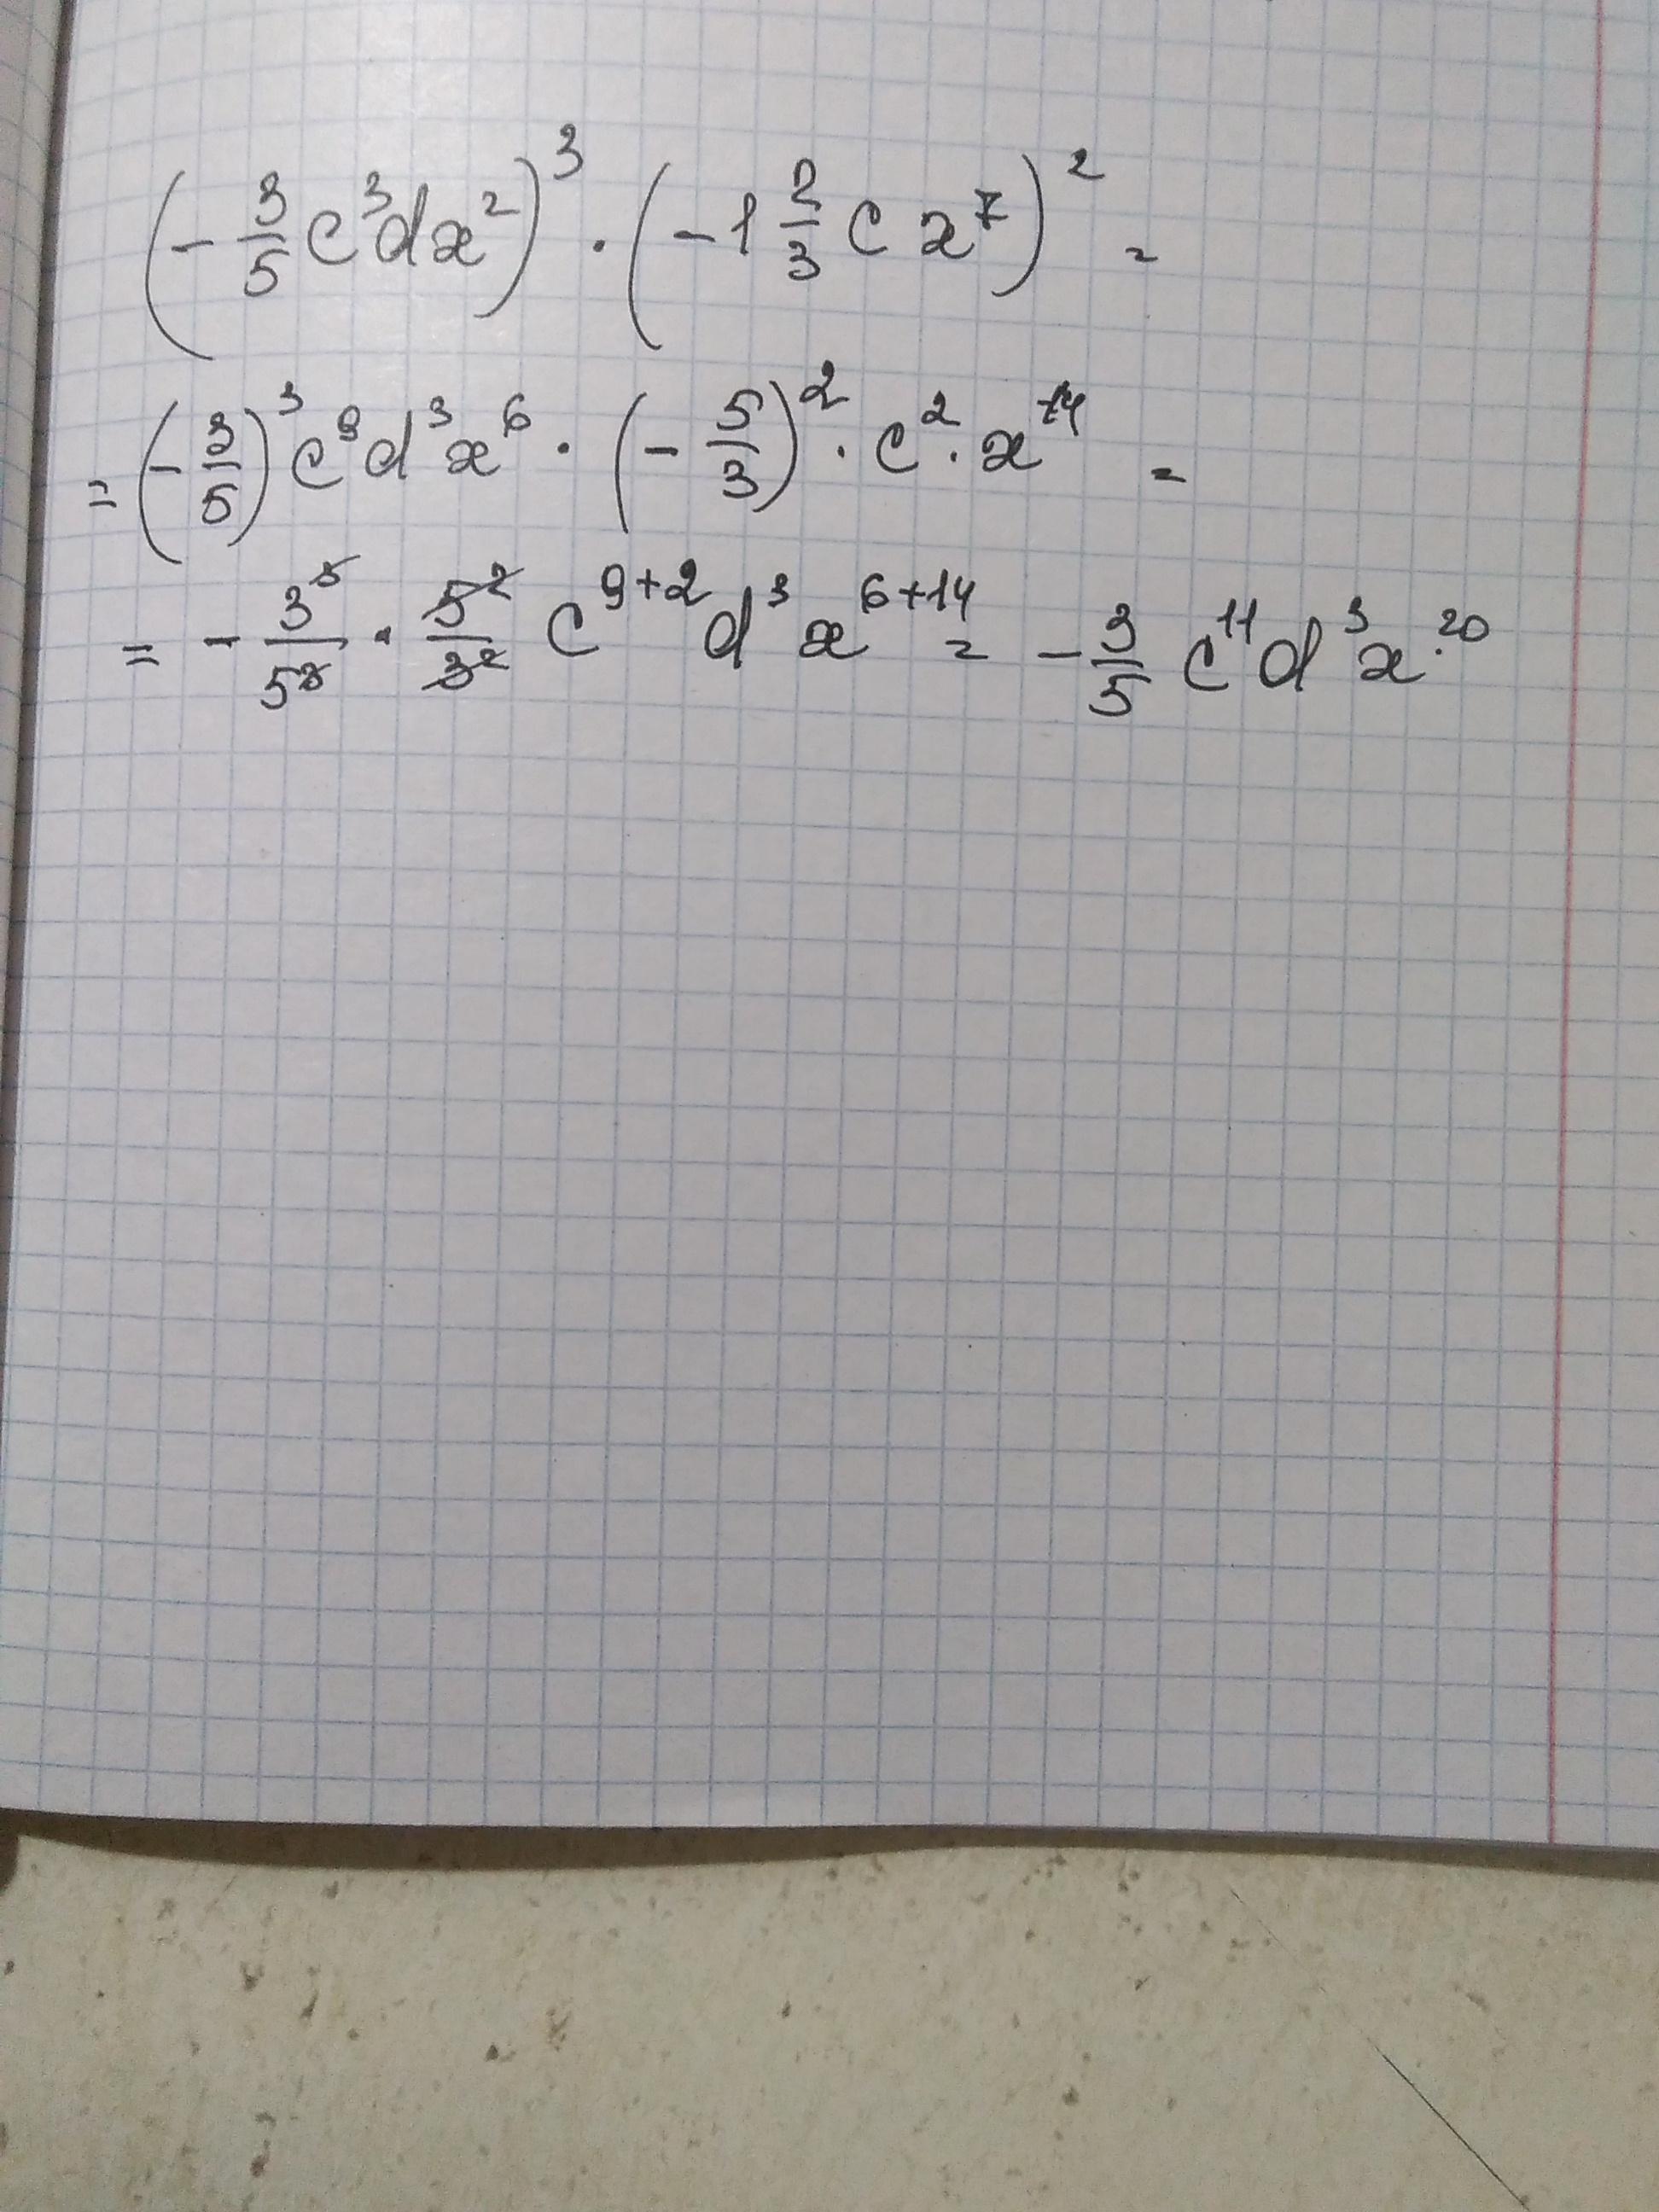 (-3/5 c³dx²)³ · (-1 2/3 c x⁷)² =
= (-3/5)³ c⁹d³x⁶ · (-5/3)² · c² · x¹⁴ =
= - 3³/5³ · 5²/3² c⁹⁺² d³ x⁶⁺¹⁴ = - 3/5 c¹¹ d³ x²⁰.